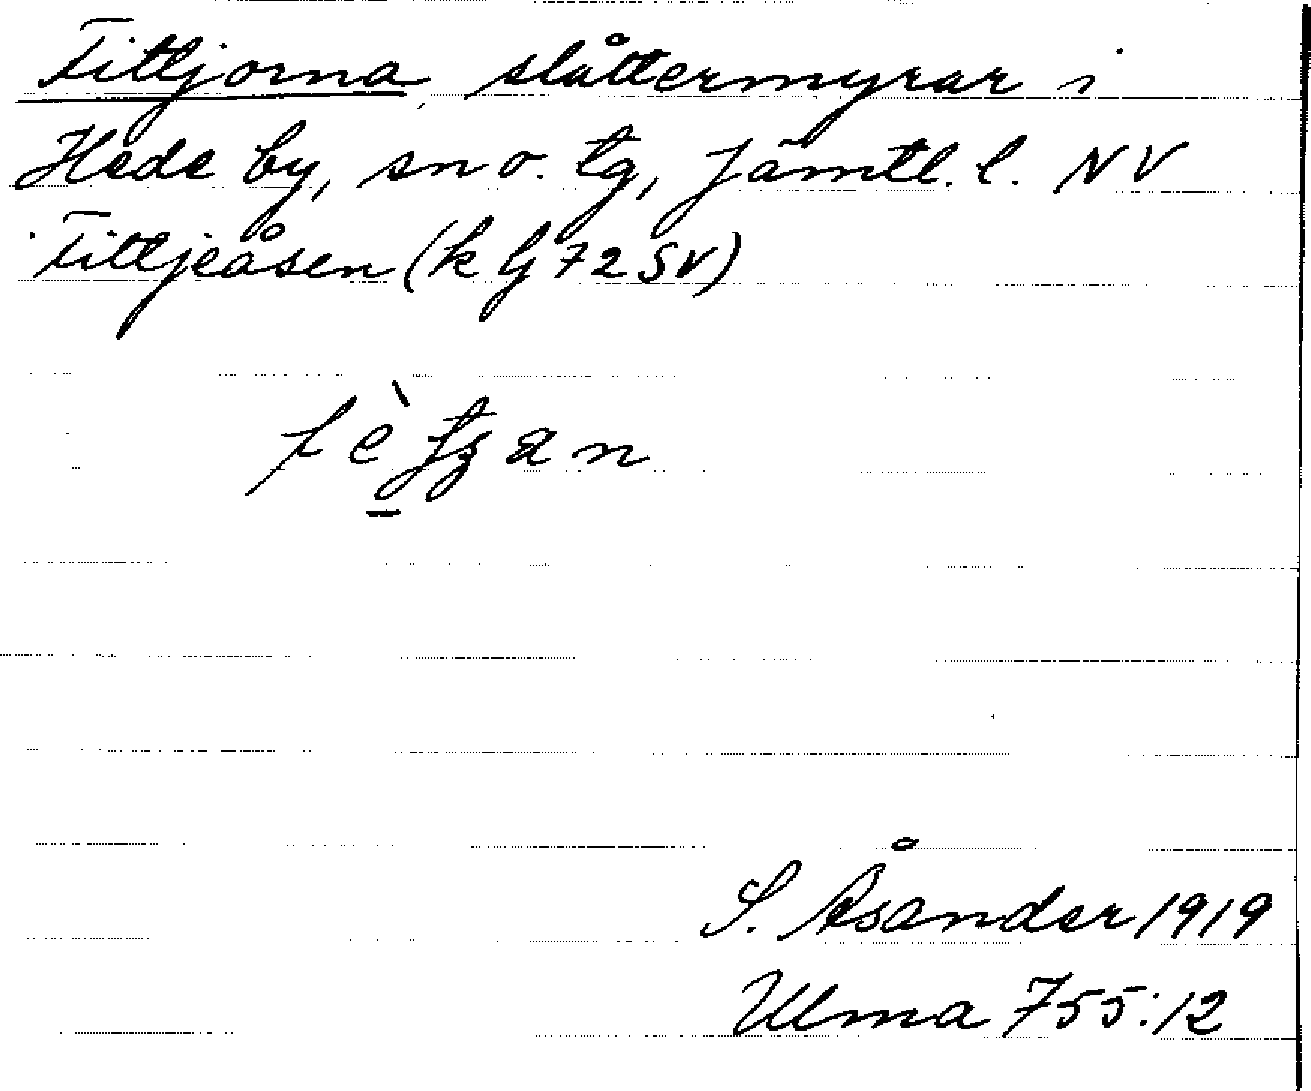 Fittjorna, slåttermyrar i
Hede by, sn o. tg, Jämtl. l. NV
Fittjeåsen (k Lj 72 SV)
S. Åsander 1919
Ulma 755:12